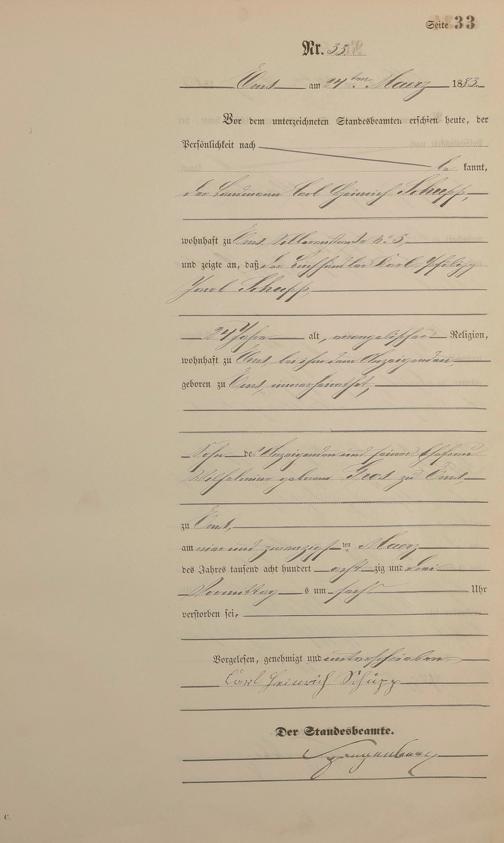 Seite 33
Nr. 33
Ems am 24ten Maerz 1883.
Vor dem unterzeichneten Standesbeamten erschien heute, der
Persönlichkeit nach
be kannt,
der Carl Heinrich Schupp,
wohnhaft zu Ems
und zeigte an, daß der
Schupp,
24 Jahre alt, evangelischer Religion,
wohnhaft zu Ems bei dem Anzeigenden
geboren zu Ems, unverheirathet,
Sohn des Anzeigenden und seiner Ehefrau
geborene zu Ems
zu Ems,
am vier und zwanzigsten Maerz
des Jahres tausend acht hundert acht zig und drei
Vormittag s um Uhr
verstorben sei.
Vorgelesen, genehmigt und unterschrieben
Carl Heinrich Schupp
Der Standesbeamte.
C.